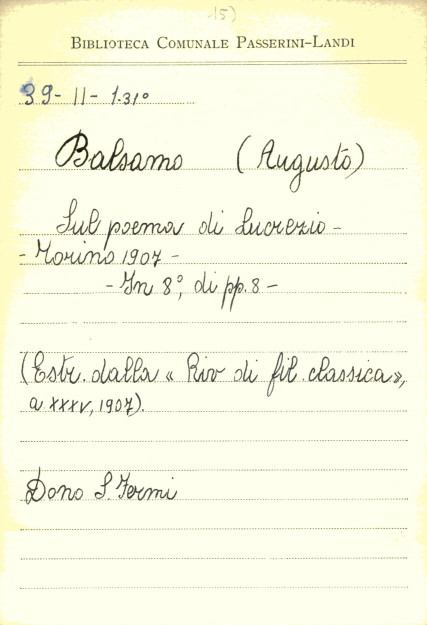 15)
BIBLIOTECA COMUNALE PASSERINI-LANDI
39-11-1.31°
Balsamo (Augusto)
Sul poema di Lucrezio -
- Torino 1907 -
- In 8°, di pp. 8 -
(Estr. dalla « Riv di fil. classica »,
a. XXXV, 1907).
Dono S. Fermi